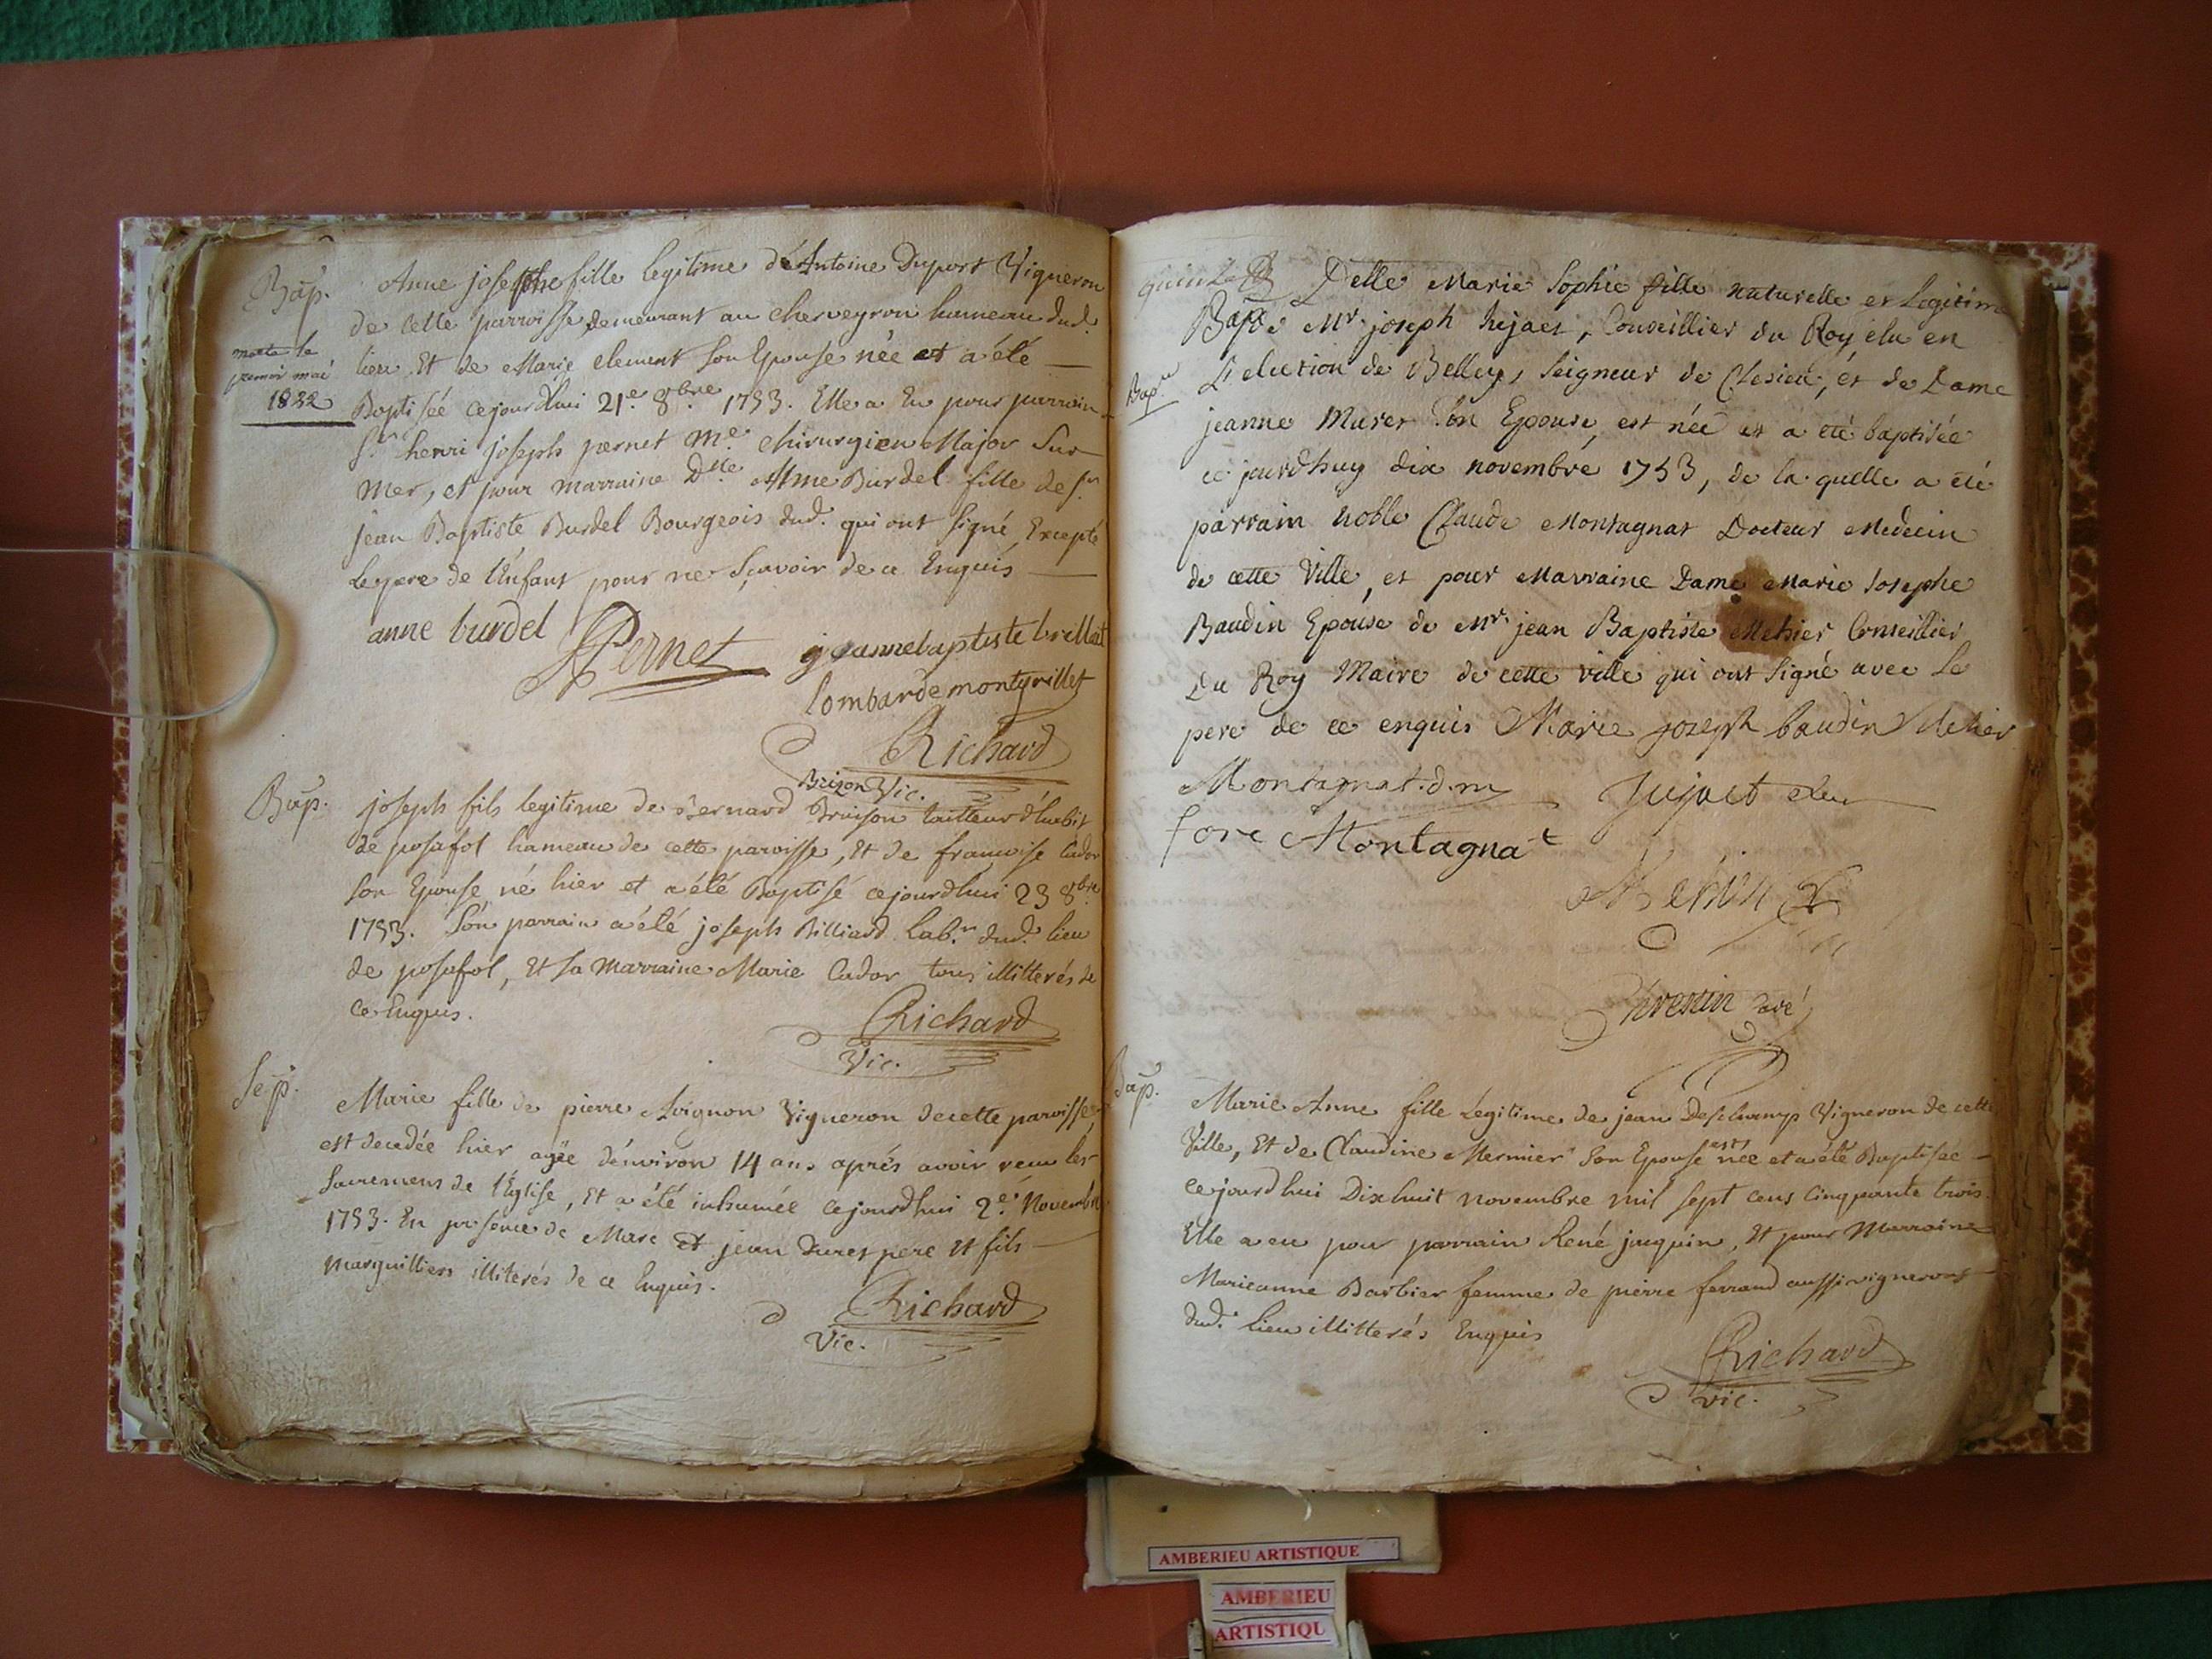 Bap.
Anne josephe fille legitime d'Antoine Duport Vigneron
de cette parroisse demeurant au cherveyron hameau dud.
morte le
premier mai
1822
lieu. Et de Marie clement son Epouse née et a été
Baptisée cejourdhui 21e. 8bre 1753. Elle a Eu pour parrain
Sr. henri joseph pernet me. chirurgien Major Sur
Mer, et pour marraine Dlle. Anne Burdel fille de Sr.
jean Baptiste Burdel Bourgeois dud. qui ont signé Excepté
le pere de l'Enfant pour ne Sçavoir de ce Enquis
anne burdel Pernet jeannebaptiste brillat
lombardemontgrillet
Richard
Vic.
Brizon
Bap.
joseph fils legitime de Bernard Bruison tailleur d'habit
de posafol hameau de cette paroisse, Et de francoise Cador
son Epouse né hier et a été Baptisé cejourdhui 23 8bre
1753. Son parrain a été joseph Billiard Labr. dud. lieu
de posafol, Et sa marraine Marie Cador tous illitterés de
ce Enquis.
Richard
Vic.
Sep.
Marie fille de pierre Avignon Vigneron decette paroisse
est decedée hier agée d'environ 14 ans aprés avoir receu les
Sacremens de l'Église, Et a été inhumée cejourdhui 2e. Novembre
1753. En presence de Marc Et jean Duret pere Et fils
marguilliers illiterés de ce Enquis.
Richard
Vic.
Delle Marie Sophie fille naturelle et Legitime
Bap. de Mr. joseph Jujact, Conseillier du Roy élu en
Bap.
L'election de Belley, Seigneur de Clesieu, et de Dame
jeanne Muret son Epouse, est née et a eté baptisée
ce jourdhuy dix novembre 1753, de la quelle a eté
parrain noble Claude Montagnat Docteur Medecin
de cette Ville, et pour Marraine Dame Marie Josephe
Baudin Epouse de Mr. jean Baptiste Mehier Conseillier
Du Roy Maire de cette ville qui ont signé avec le
pere de ce enquis Marie joseph baudin Mehier
Montagnat.d.m Jujact elu
fore Montagnat
Mehier
Curé
Bap.
Marie Anne fille Légitime de jean Deschamp Vigneron de cette
Ville, Et de Claudine Mermier Son Epouse est née et a été Baptisée
cejourdhui Dix huit novembre mil sept cens cinquante trois.
Elle a eu pour parrain René juquin, Et pour Marraine
Marieanne Barbier femme de pierre ferrand aussi vigneron
dud. lieu illitterés Enquis
Richard
vic.
AMBERIEU ARTISTIQUE
AMBERIEU
ARTISTIQU